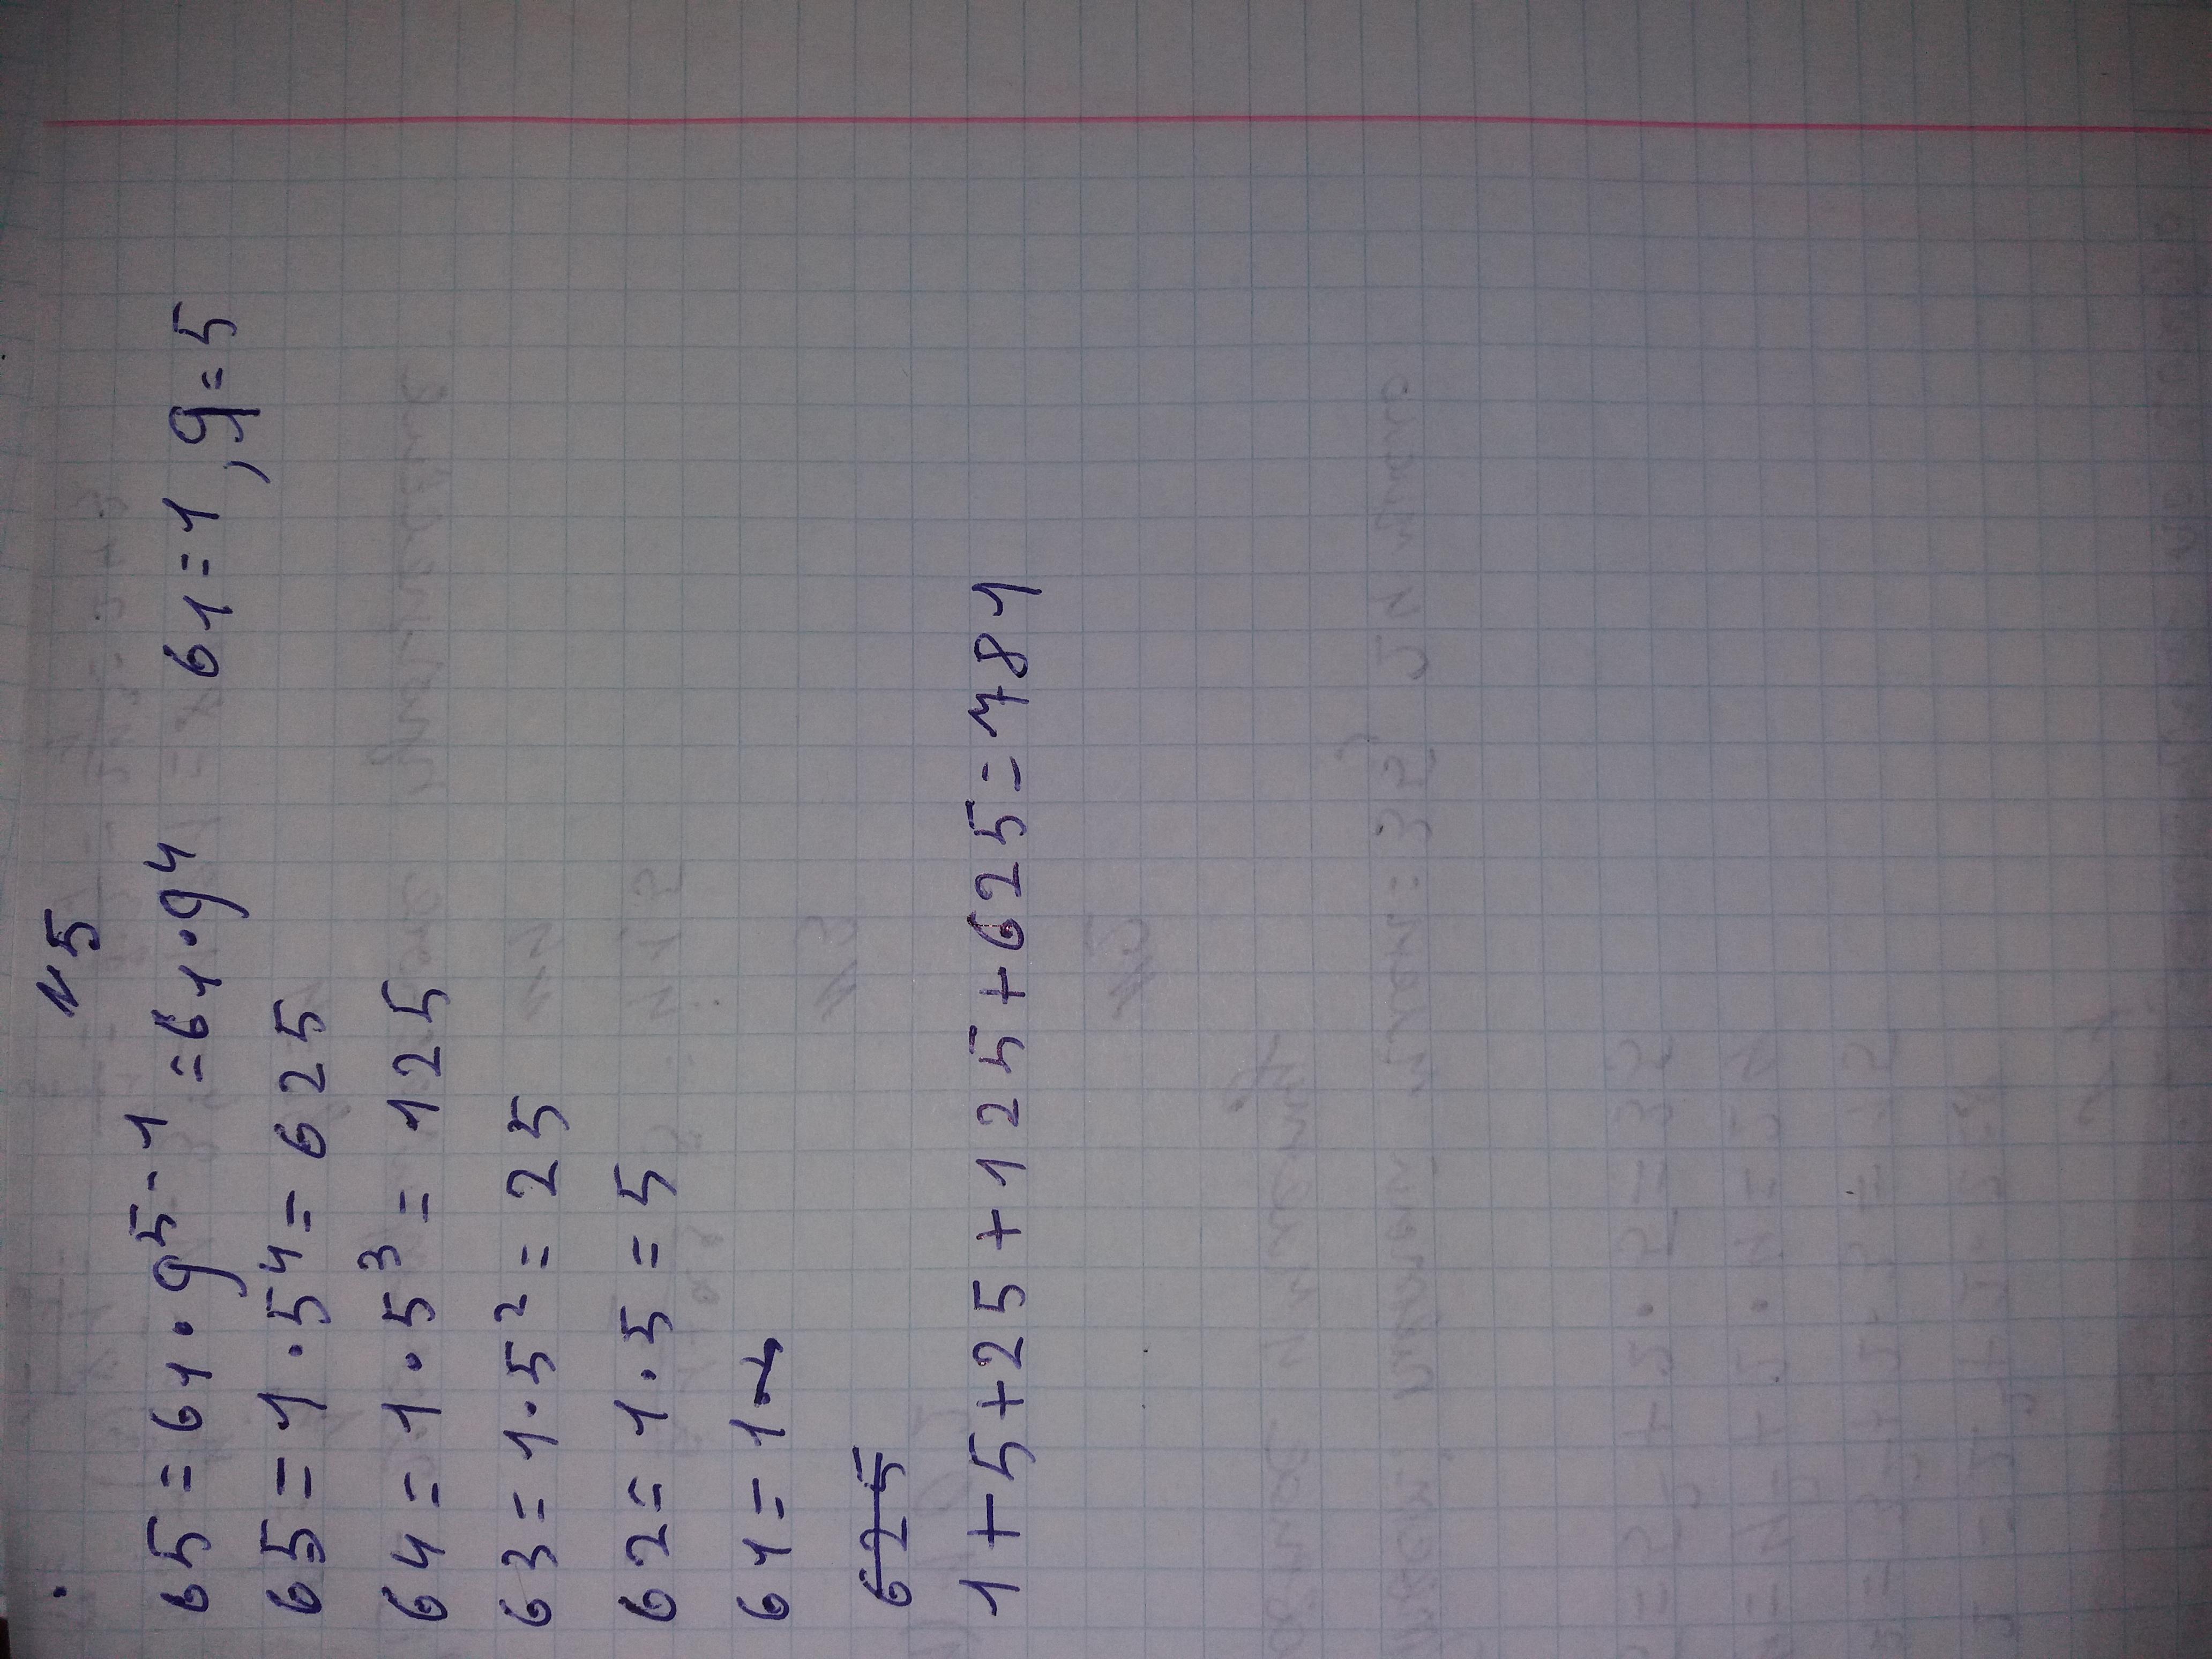 N5
b5 = b1 · q^5-1 = b1 · q^4 b1 = 1, q = 5
b5 = 1 · 5^4 = 625
b4 = 1 · 5^3 = 125
b3 = 1 · 5^2 = 25
b2 = 1 · 5 = 5
b1 = 1
625
1 + 5 + 25 + 125 + 625 = 781